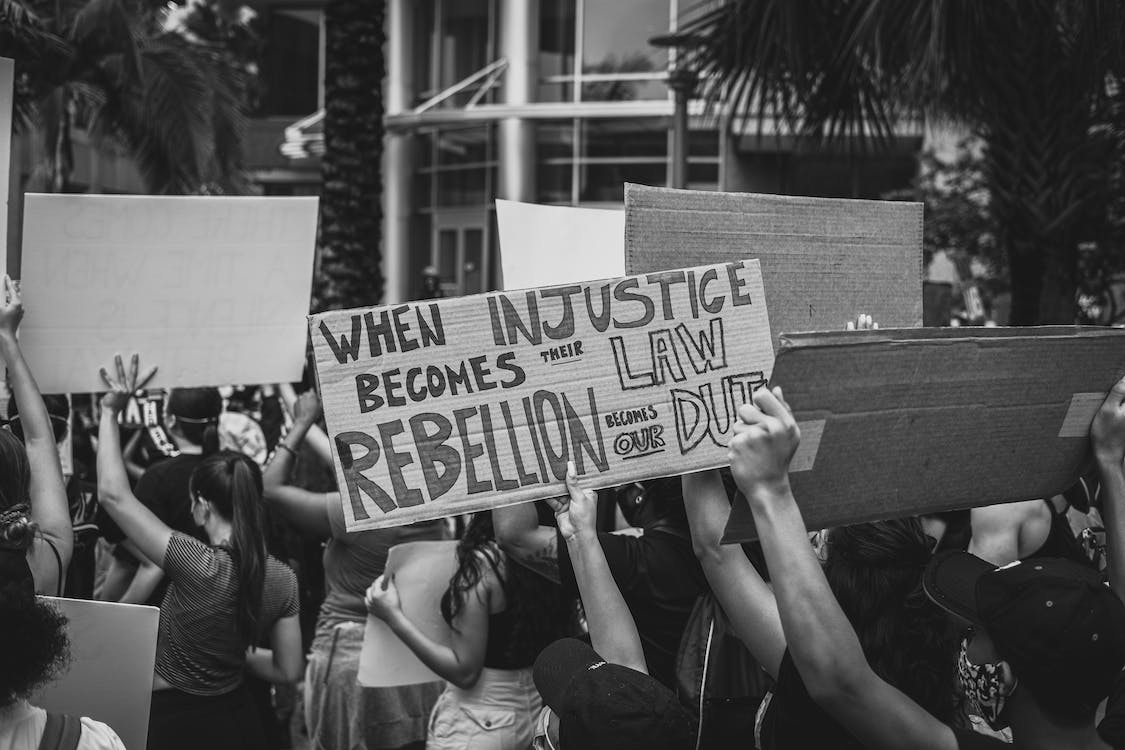 WHEN INJUSTICE
BECOMES THEIR LAW
REBELLION BECOMES OUR DUTY